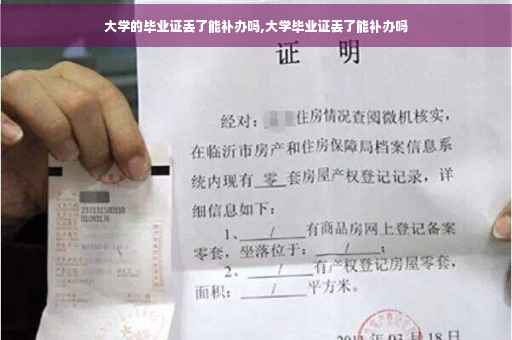 大学的毕业证丢了能补办吗,大学毕业证丢了能补办吗
证 明
经对： 住房情况查阅微机核实，
在临沂市房产和住房保障局档案信息系
统内现有 零 套房屋产权登记记录，详
细信息如下：
1、 / 有商品房网上登记备案
零套，坐落位于： / ；
2、 / 有产权登记房屋零套，
面积： / 平方米。
03 月 18 日